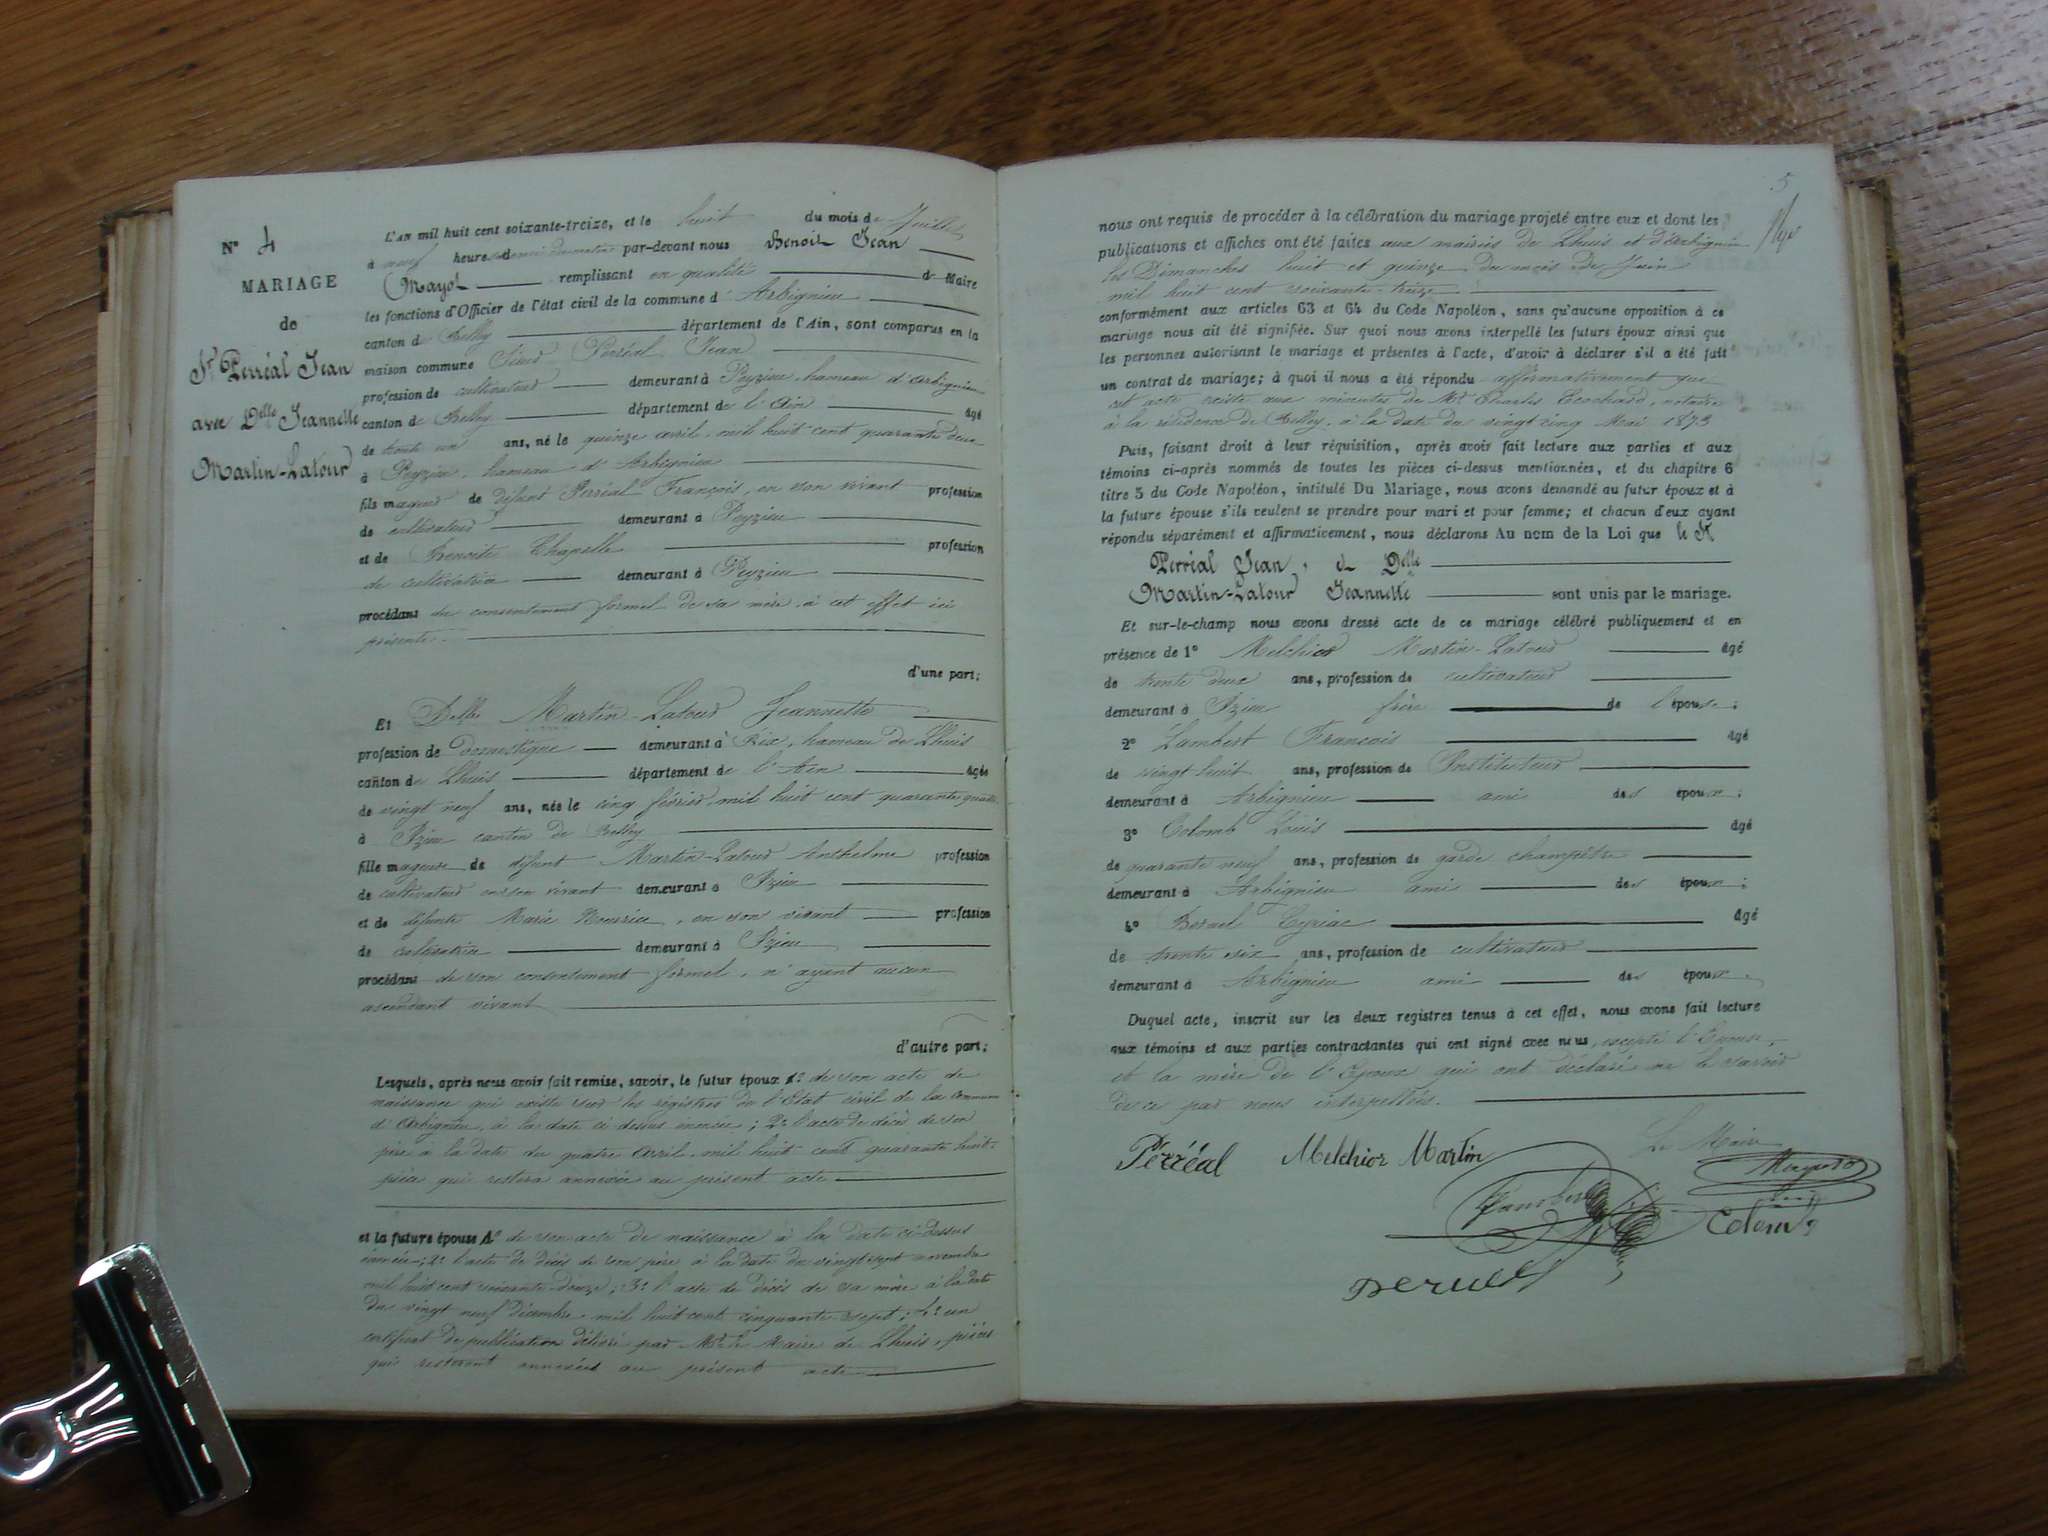 N° 4
MARIAGE
de
Sr Perréal Jean
avec Delle Jeannette
Martin-Latour
L'AN mil huit cent soixante-treize, et le huit du mois de Juillet
à neuf heures et demi du matin par-devant nous Benoit Jean
Mayot remplissant en qualité de Maire
les fonctions d'Officier de l'état civil de la commune d'Arbignieu
canton de Belley département de l'Ain, sont comparus en la
maison commune Sieur Perréal Jean
profession de cultivateur demeurant à Peyzieu, hameau d'Arbignieu
canton de Belley département de l'Ain âgé
de trente un ans, né le quinze avril, mil huit cent quarante deux
à Peyzieu, hameau d'Arbignieu
fils mageur de défunt Perréal François, en son vivant profession
de cultivateur demeurant à Peyzieu
et de Benoite Chapelle profession
de cultivatrice demeurant à Peyzieu
procédant du consentement formel de sa mère, à cet effet ici
présente.
d'une part;
Et Delle Martin-Latour Jeannette
profession de Domestique demeurant à Rix, hameau de Lhuis
canton de Lhuis département de l'Ain âgée
de vingt neuf ans, née le cinq février, mil huit cent quarante quatre
à Izieu canton de Belley
fille mageure de défunt Martin-Latour Anthelme profession
de cultivateur en son vivant demeurant à Izieu
et de défunte Marie, en son vivant profession
de cultivatrice demeurant à Izieu
procédant de son consentement formel, n'ayant aucun
ascendant vivant
d'autre part;
Lesquels, après nous avoir fait remise, savoir, le futur époux 1° de son acte de
naissance qui existe sur les registres de l'Etat civil de la commune
d'Arbignieu, à la date ci-dessus énoncée; 2° l'acte de décès de son
père à la date du quatre avril, mil huit cent quarante huit,
pièce qui restera annexée au présent acte
et la future épouse 1° de son acte de naissance à la date ci-dessus
énoncée; 2° l'acte de décès de son père à la date du vingt sept novembre
mil huit cent soixante-douze; 3° l'acte de décès de sa mère à la date
du vingt neuf Décembre, mil huit cent cinquante-sept; 4° un
certificat de publication délivré par Mr le Maire de Lhuis, pièces
qui resteront annexées au présent acte
5
nous ont requis de procéder à la célébration du mariage projeté entre eux et dont les
publications et affiches ont été faites aux mairies de Lhuis et d'Arbignieu
les Dimanches huit et quinze du mois de Juin
mil huit cent soixante-treize
conformément aux articles 63 et 64 du Code Napoléon, sans qu'aucune opposition à ce
mariage nous ait été signifiée. Sur quoi nous avons interpellé les futurs époux ainsi que
les personnes autorisant le mariage et présentes à l'acte, d'avoir à déclarer s'il a été fait
un contrat de mariage; à quoi il nous a été répondu affirmativement que
cet acte existe aux minutes de Me Charles Trochard, notaire
à la résidence de Belley, à la date du vingt cinq Mai 1873
Puis, faisant droit à leur réquisition, après avoir fait lecture aux parties et aux
témoins ci-après nommés de toutes les pièces ci-dessus mentionnées, et du chapitre 6
titre 5 du Code Napoléon, intitulé Du Mariage, nous avons demandé au futur époux et à
la future épouse s'ils veulent se prendre pour mari et pour femme; et chacun d'eux ayant
répondu séparément et affirmativement, nous déclarons Au nom de la Loi que le Sr
Perréal Jean, et Delle
Martin-Latour Jeannette sont unis par le mariage.
Et sur-le-champ nous avons dressé acte de ce mariage célébré publiquement et en
présence de 1° Melchior Martin-Latour âgé
de trente deux ans, profession de cultivateur
demeurant à Izieu frère de l'épouse;
2° Lambert François âgé
de vingt huit ans, profession de Instituteur
demeurant à Arbignieu ami des époux;
3° Colomb Louis âgé
de quarante neuf ans, profession de garde champêtre
demeurant à Arbignieu ami des époux;
4° Cyriac âgé
de trente six ans, profession de cultivateur
demeurant à Arbignieu ami des époux.
Duquel acte, inscrit sur les deux registres tenus à cet effet, nous avons fait lecture
aux témoins et aux parties contractantes qui ont signé avec nous, excepté l'Epouse,
et la mère de l'Epoux qui ont déclaré ne le savoir
de ce par nous interpellées.
Le Maire
Perréal Melchior Martin
Lambert
Colomb